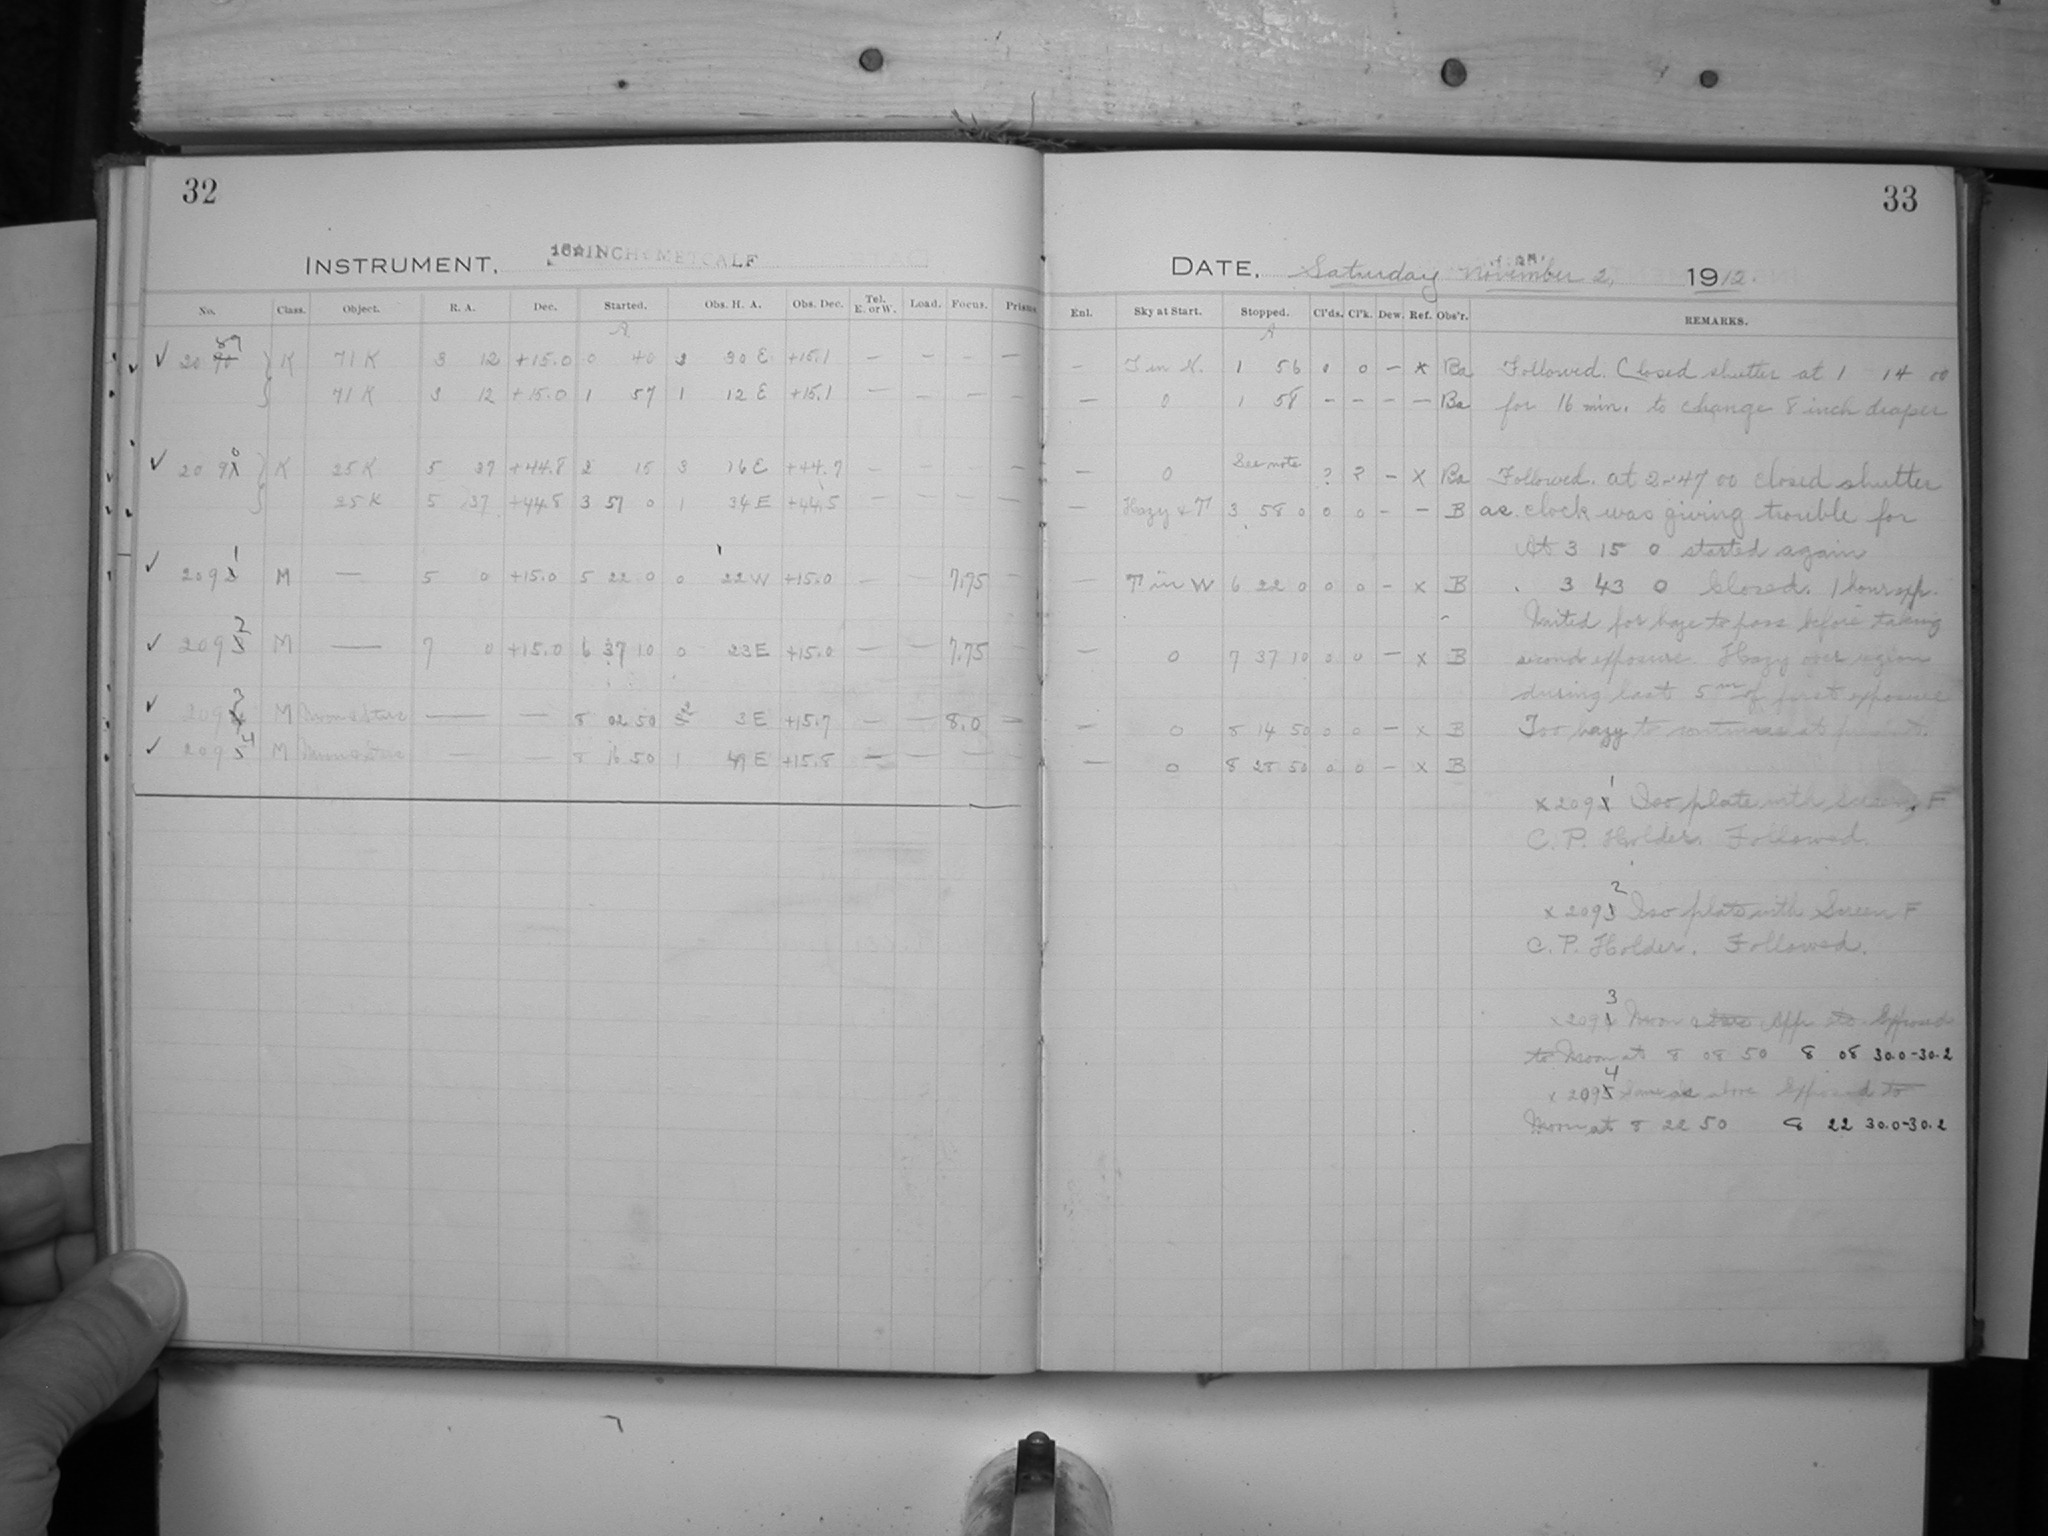 32
INSTRUMENT, 16 INCH METCALF
No. Class. Object. R. A. Dec. Started. Obs. H. A. Obs. Dec. Tel. E. or W. Load. Focus. Prisms
A
2089 K 71 K 3 12 +15.0 0 40 2 30 E +15.1 — — — —
71 K 3 12 +15.0 1 57 1 12 E +15.1 — — — —
2090 K 25 K 5 37 +44.8 2 15 3 16 E +44.7 — — —
25 K 5 37 +44.8 3 57 0 1 34 E +44.5 — — — —
2091 M — 5 0 +15.0 5 22 0 0 22 W +15.0 — — 7.75 —
2092 M — 7 0 +15.0 6 37 10 0 23 E +15.0 — — 7.75 —
2093 M Moon & stars — — 8 02 50 2 3 E +15.7 — — 8.0 —
2094 M Moon & stars — — 8 16 50 1 49 E +15.8 — — — —
33
DATE, Saturday November 2, 1912.
Enl. Sky at Start. Stopped. Cl'ds. Cl'k. Dew. Ref. Obs'r. REMARKS.
A
— T in N. 1 56 0 0 — x Ba Followed. Closed shutter at 1 14 00
— 0 1 58 — — — — Ba for 16 min. to change 8 inch draper
— 0 See note ? ? — x Ba Followed. at 2-47 00 closed shutter
— Hazy & T 3 58 0 0 0 — — B as clock was giving trouble for
At 3 15 0 started again
— T in W 6 22 0 0 0 — x B . 3 43 0 Closed. 1 hour exp.
Waited for haze to pass before taking
— 0 7 37 10 0 0 — x B second exposure. Hazy over region
during last 5 m of first exposure
— 0 8 14 50 0 0 — x B Too hazy to continue at present.
— 0 8 28 50 0 0 — x B
x 2091 Iso plate with Screen F
C. P. Holder. Followed.
x 2092 Iso plate with Screen F
C. P. Holder. Followed.
x 2093 Moon Exposed
to Moon at 8 08 50 8 08 30.0-30.2
x 2094 Same as above Exposed to
Moon at 8 22 50 8 22 30.0-30.2